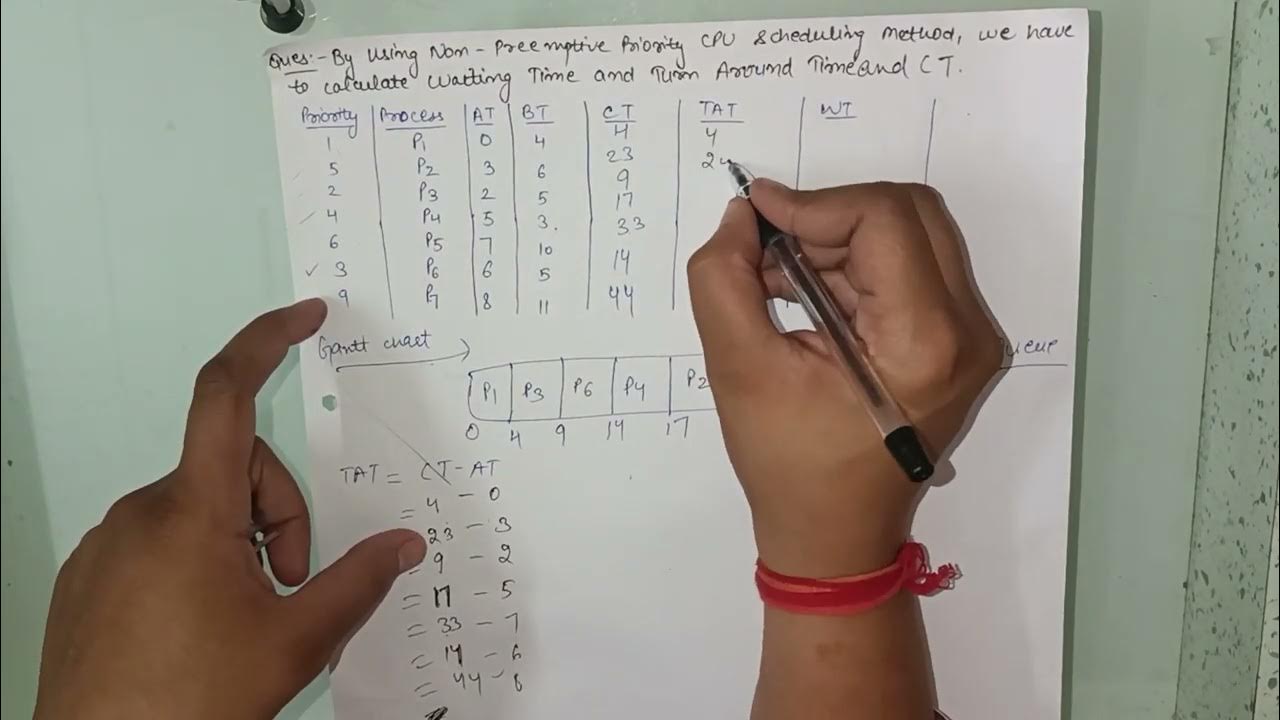 Ques:- By Using Non-Preemptive Priority CPU Scheduling Method, we have
to calculate Waiting Time and Turn Around Time and CT.
Priority Process AT BT CT TAT WT
1 P1 0 4 4 4
5 P2 3 6 23 20
2 P3 2 5 9
4 P4 5 3. 17
6 P5 7 10 33
✓ 3 P6 6 5 14
9 P7 8 11 44
Gantt chart
P1 P3 P6 P4 P2
0 4 9 14 17
TAT = CT - AT
= 4 - 0
23 - 3
= 9 - 2
= 17 - 5
= 33 - 7
= 14 - 6
= 44 - 8